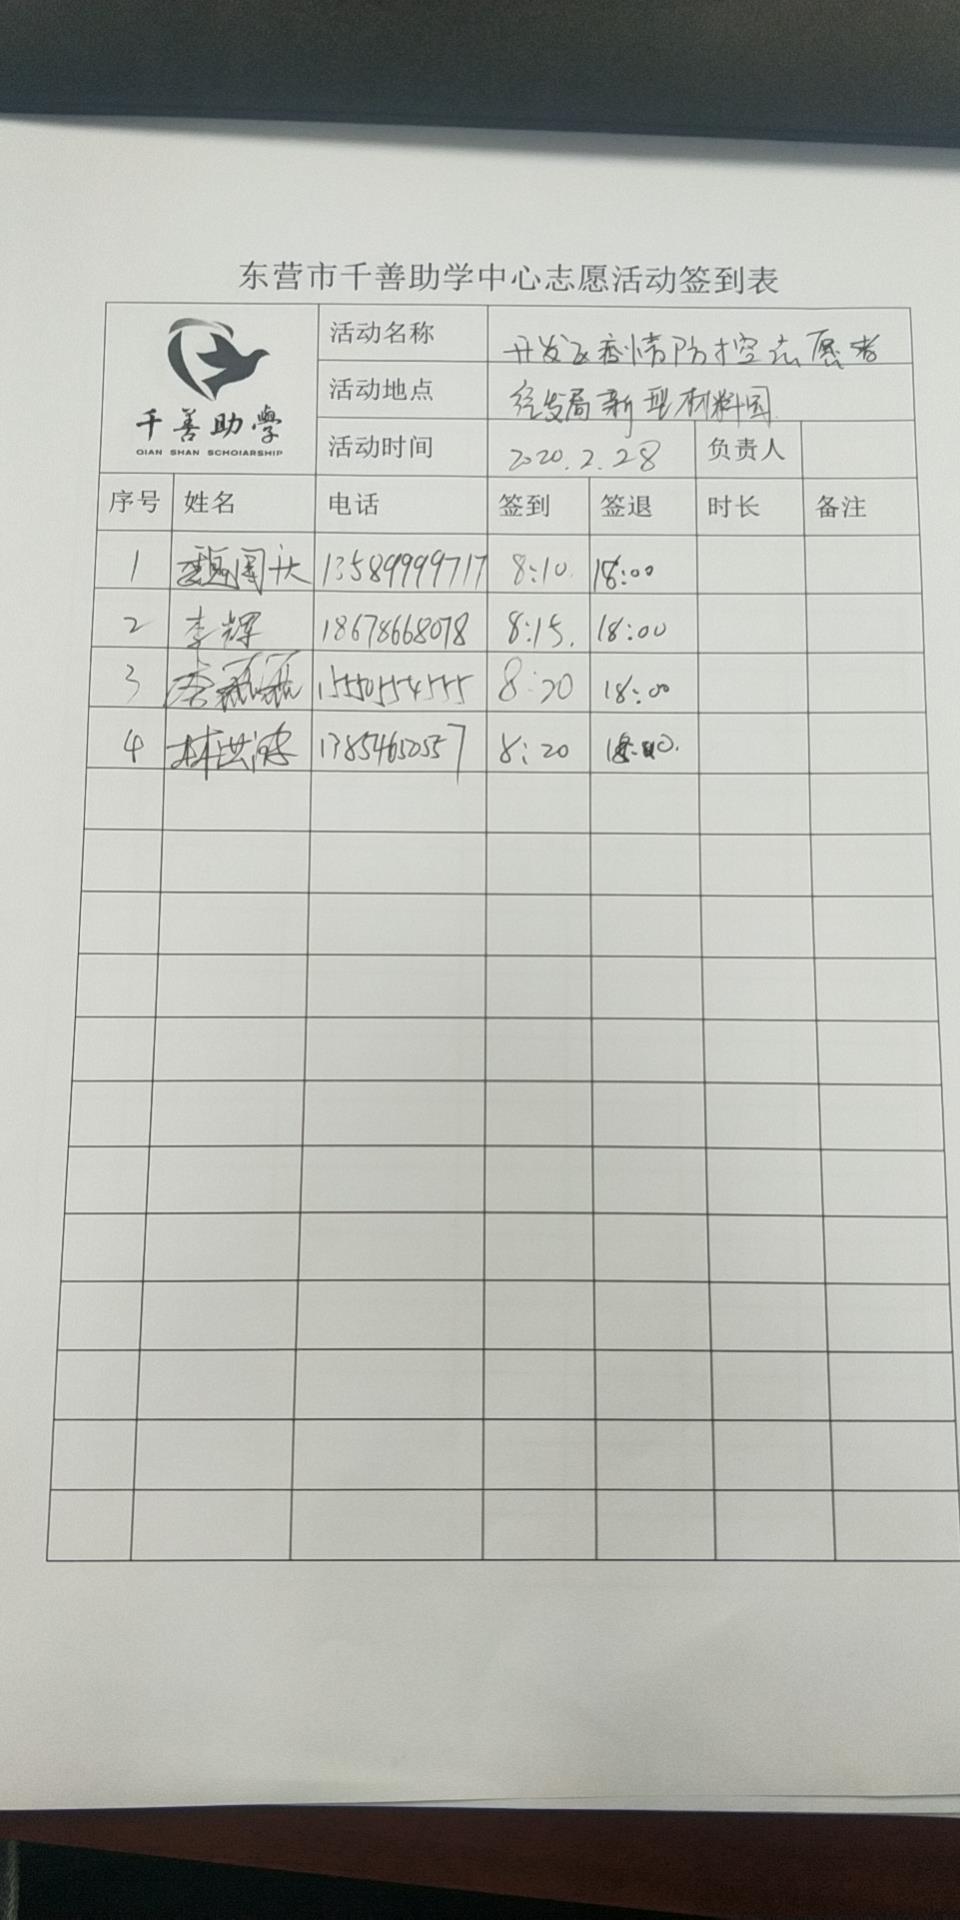 东营市千善助学中心志愿活动签到表
千善助學
QIAN SHAN SCHOLARSHIP
活动名称 开发区疫情防控志愿者
活动地点 经发局新型材料园
活动时间 2020.2.28 负责人
序号 姓名 电话 签到 签退 时长 备注
1 魏国庆 13589999717 8:10 18:00
2 李辉 18678668078 8:15. 18:00
3 15550554555 8:20 18:00
4 林洪涛 13854650557 8:20